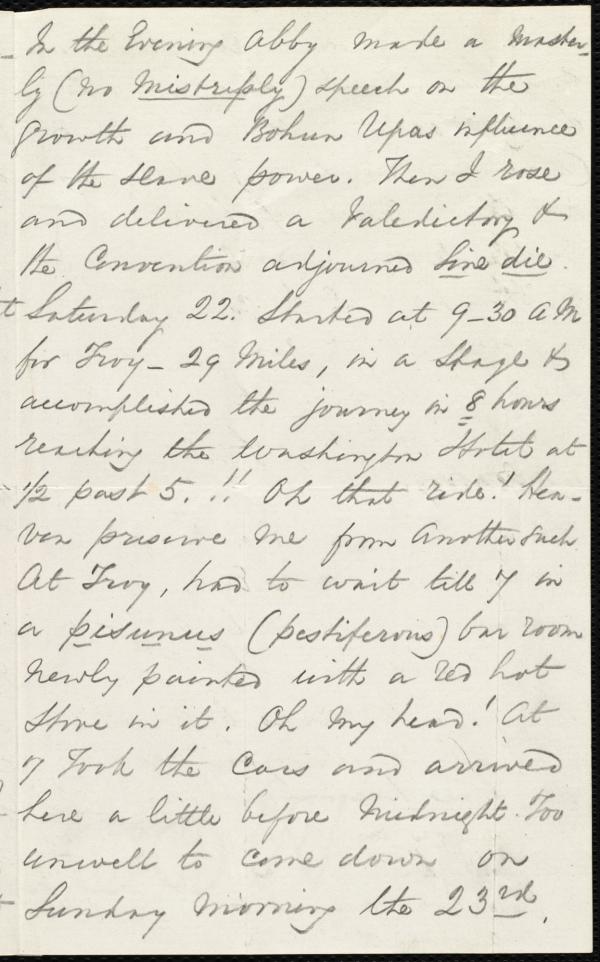 In the Evening Abby made a Master-
ly (no Mistressly) speech on the
growth and Bohun Upas influence
of the slave power. Then I rose
and delivered a Valedictory &
the Convention adjourned Sine die.
Saturday 22. Started at 9-30 A M
for Troy - 29 Miles, in a Stage &
accomplished the journey in 8 hours
reaching the Washington Hotel at
1/2 past 5. !! Oh that ride! Hea-
ven preserve me from another such
At Troy, had to wait till 7 in
a pisunus (pestiferous) bar room
newly painted with a red hot
stove in it. Oh my head! At
7 Took the Cars and arrived
here a little before Midnight. Too
unwell to come down on
Sunday Morning the 23rd.